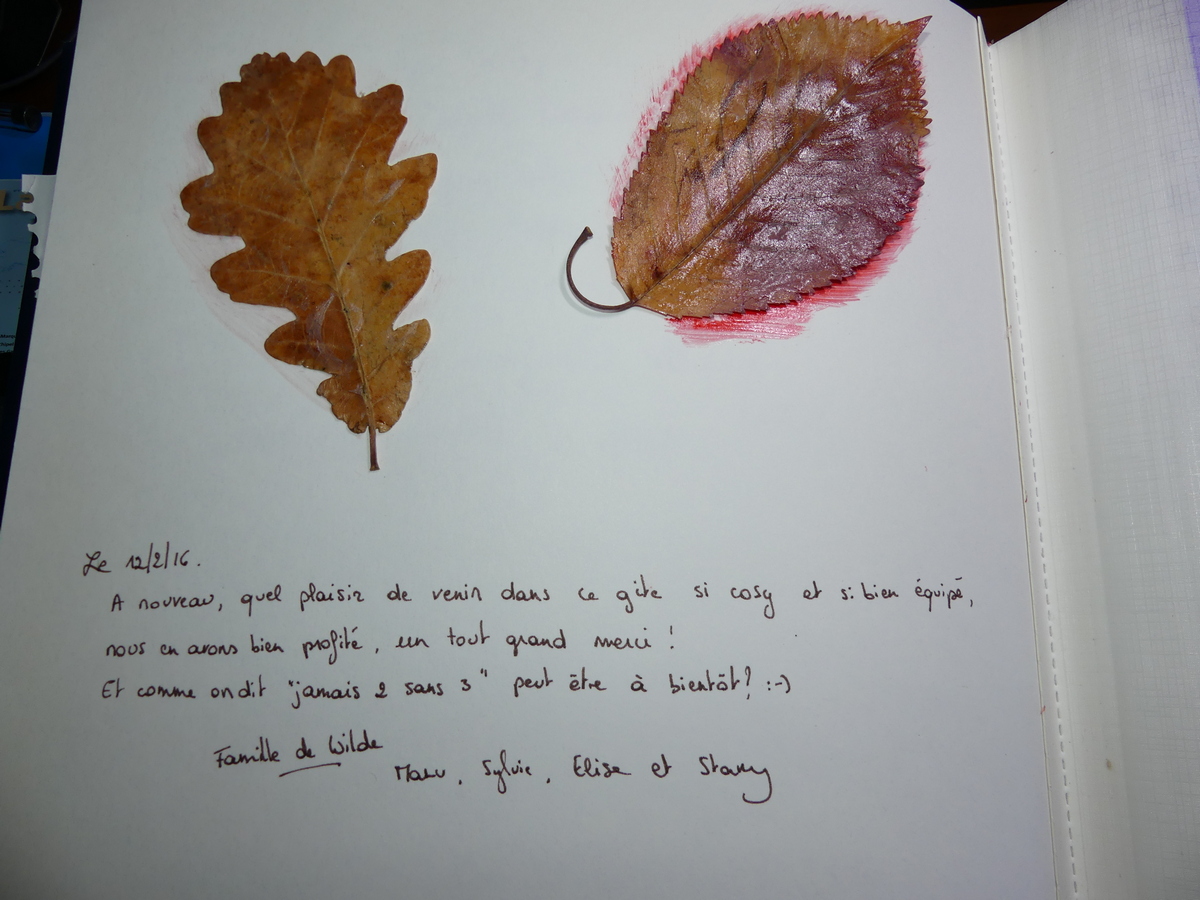 Le 12/2/16.
A nouveau, quel plaisir de venir dans ce gîte si cosy et si bien équipé,
nous en avons bien profité, un tout grand merci !
Et comme on dit "jamais 2 sans 3" peut être à bientôt? :-)
Famille de Wilde
Manu, Sylvie, Elisa et Stany